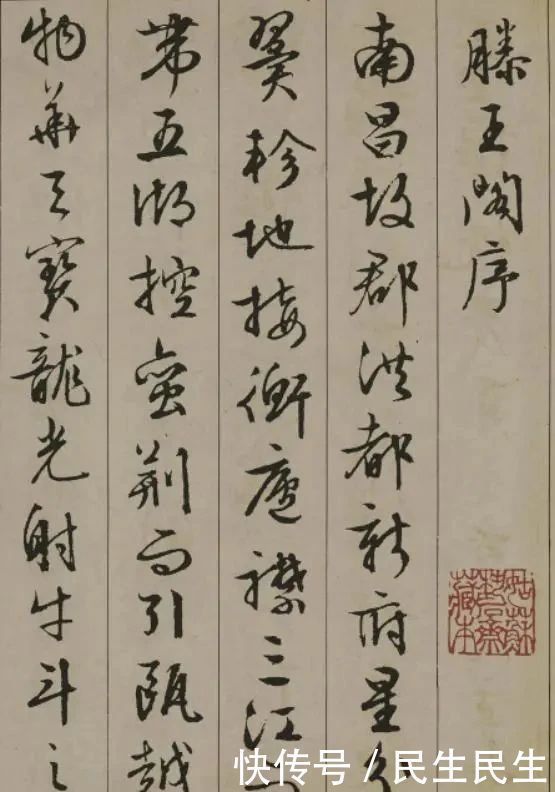 滕王閣序
南昌故郡洪都新府星
翼軫地接衡廬襟三江
帶五湖控蠻荊而引甌越
物華天寶龍光射牛斗之
姑蘇
藏本
快传号 / 民生民生